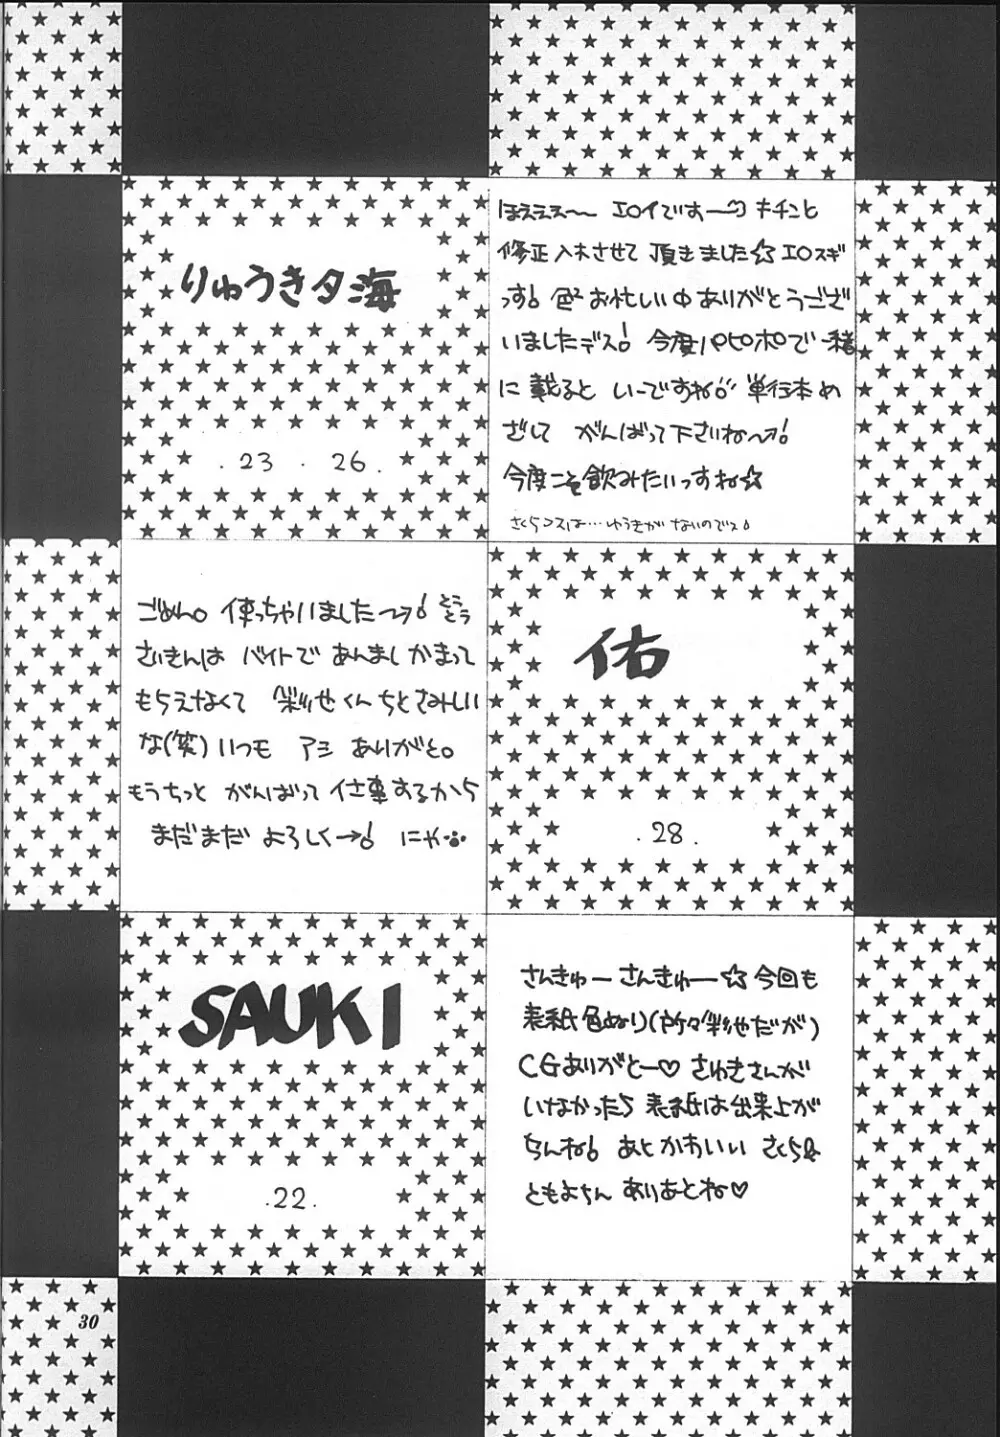 りゅうき夕海
.23 .26.
ほぇぇぇ〜 エロイですー♡ キチンと
修正入れさせて 頂きました☆エロスギ
っす! 色々お忙しい中ありがとうござ
いましたデス! 今度パピポで一緒
に載るといーですね! 単行本め
ざして がんばって下さいね〜!
今度こそ飲みたいっすね☆
さくらコスは…ゆうきがないのデス!
ごめん。使っちゃいました〜! どうも
さいきんは バイトで あんましかまって
もらえなくて 彩池くんちとさみしい
な(笑) いつも アシ ありがと。
もうちっと がんばって 仕事するから
まだまだ よろしく→! にゃ
佑
.28.
SAUKI
.22.
さんきゅー さんきゅー☆今回も
表紙色ぬり(所々彩池だが)
CGありがとー♡ さゆきさんが
いなかったら 表紙は出来上が
らんね! あと かわいい さくら&
ともよちん ありあとね♡
30